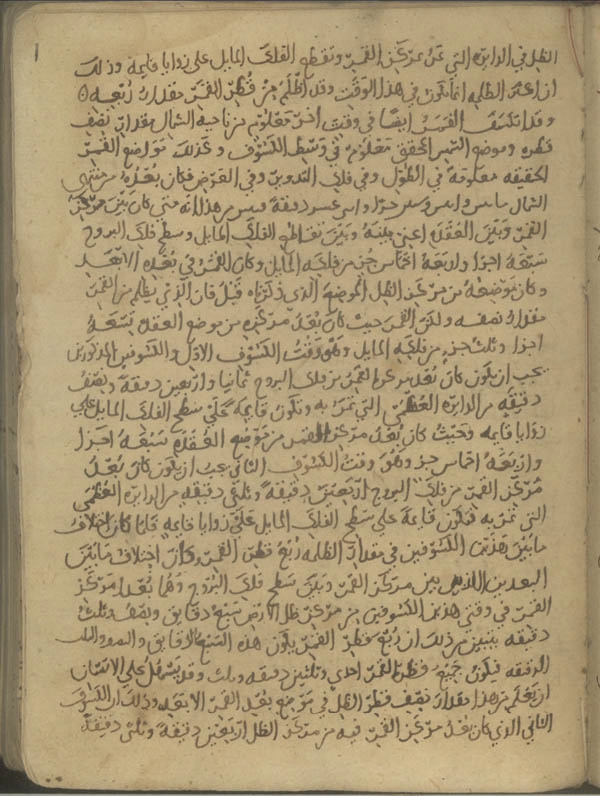 الظل في الدايره التي تمر بمركز القمر وتقطع الفلك المايل علي زوايا قايمة وذلك
ان اعظم الظلمه انما تكون في هذا الوقت وقد اظلم من قطر القمر مقدار ربعه
وقد انكسف القمر ايضا في وقت اخر معلوم من ناحية الشمال مقدار نصف
قطره وموضع الشمس المحقق معلوم في وسط الكسوف وكذلك مواضع القمر
الحقيقه معلومة في الطول وفي فلك التدوير وفي العرض فكان بعده من منتهى
الشمال جزءا دقيقة فبين من هذا انه متى كان بين مركز
القمر وبين العقده اعني بينه وبين تقاطع الفلك المايل وسطح فلك البروج
سبعة اجزا واربعة اخماس جز من فلكه المايل وكان القمر في بعده الابعد
وكان موضعه من مركز الظل الموضع الذي ذكرناه قبل فان الذي يظلم من القمر
مقدار نصفه ولكن القمر حيث كان بعد مركزه من موضع العقدة تسعة
اجزا وثلث جزء من فلكه المايل وهو وقت الكسوف الاول من الكسوفين المذكورين
يجب ان يكون كان بعد مركز القمر من فلك البروج ثمانيا واربعين دقيقة ونصف
دقيقه من الدايره العظمى التي تمر به وتكون قايمة على سطح الفلك المايل علي
زوايا قايمه وحيث كان بعد مركز القمر من موضع العقده سبعة اجزا
واربعة اخماس جز وهو وقت الكسوف الثاني يجب ان يكون كان بعد
مركز القمر من فلك البروج اربعين دقيقة وثلثي دقيقه من الدايره العظمى
التي تمر به فتكون قايمة علي سطح الفلك المايل علي زوايا قايمه فلما كان اختلاف
ما بين هذين الكسوفين في مقدار الظلمه ربع قطر القمر وكان اختلاف ما بين
البعدين اللذين بين مركز القمر وبين سطح فلك البروج وهما بعدا مركز
القمر في وقتي هذين الكسوفين من مركز ظل الارض سبع دقايق ونصف وثلث
دقيقه يتبين من ذلك ان ربع قطر القمر يكون هذه السبع الدقايق والنصف والثلث
الدقيقه فيكون جميع قطر القمر احدي وثلثين دقيقه وثلث وقد يسهل على الانسان
ان يعلم من هذا مقدار نصف قطر الظل في موضع بعد القمر الابعد وذلك ان الكسوف
الثاني الذي كان بعد مركز القمر فيه من مركز الظل اربعين دقيقة وثلثي دقيقة